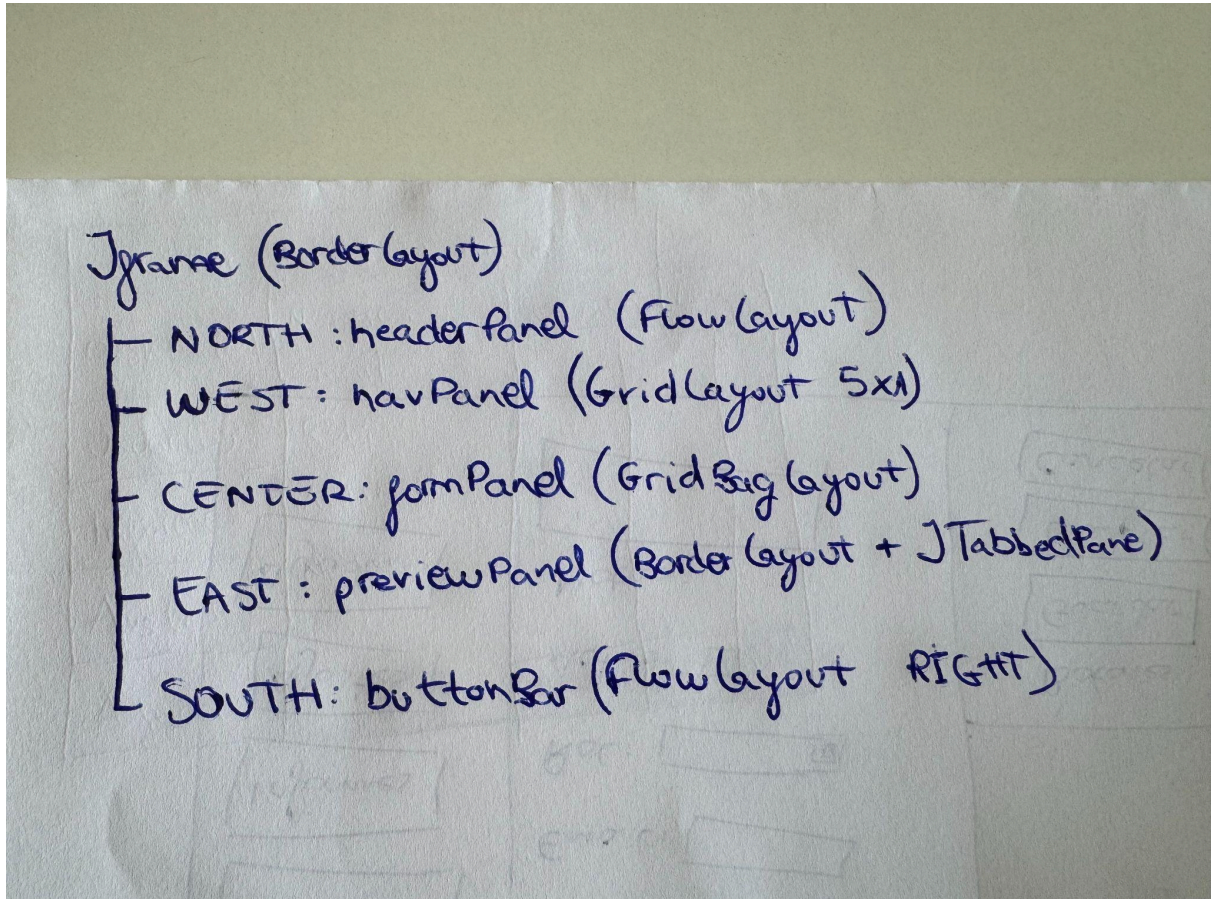 Jframe (BorderLayout)
NORTH : headerPanel (FlowLayout)
WEST : navPanel (GridLayout 5x1)
CENTER: formPanel (GridBagLayout)
EAST : previewPanel (BorderLayout + JTabbedPane)
SOUTH: buttonBar (FlowLayout RIGHT)